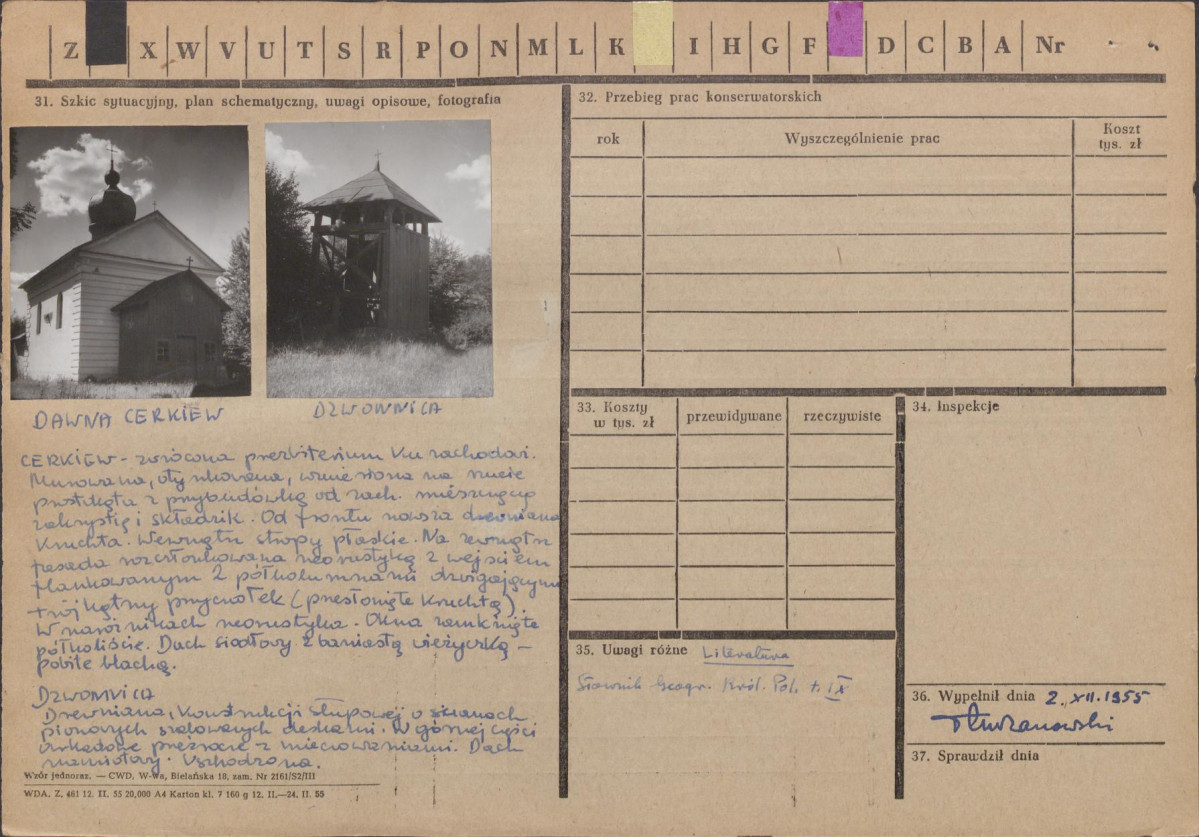 Z X W V U T S R P O N M L K I H G F D C B A Nr
31. Szkic sytuacyjny, plan schematyczny, uwagi opisowe, fotografia
DAWNA CERKIEW
DZWONNICA
CERKIEW - zwrócona prezbiterium ku zachodowi.
Murowana, otynkowana, wzniesiona na rzucie
prostokąta z przybudówką od zach. mieszczącą
zakrystię i składzik. Od frontu nowsza drewniana
Kruchta. Wewnątrz stropy płaskie. Na zewnątrz
fasada rozczłonkowana neorustyką z wejściem
flankowanym 2 półkolumnami dźwigającymi
trójkątny przyczółek (przesłonięte Kruchtą).
W narożnikach neorustyka. Okna zamknięte
półkoliście. Dach siodłowy z baniastą wieżyczką -
pobite blachą.
DZWONNICA
Drewniana, konstrukcji słupowej o ścianach
pionowych szalowanych deskami. W górnej części
arkadowe przezrocze z mieczowaniami. Dach
namiotowy. Uszkodzona.
Wzór jednoraz. — CWD, W-wa, Bielańska 18, zam. Nr 2161/S2/III
WDA. Z. 461 12. II. 55 20,000 A4 Karton kl. 7 160 g 12. II.—24. II. 55
32. Przebieg prac konserwatorskich
rok Wyszczególnienie prac Koszt tys. zł
33. Koszty w tys. zł przewidywane rzeczywiste
34. Inspekcje
35. Uwagi różne Literatura
Słownik Geogr. Król. Pol. t. IX
36. Wypełnił dnia 2. XII. 1955
37. Sprawdził dnia